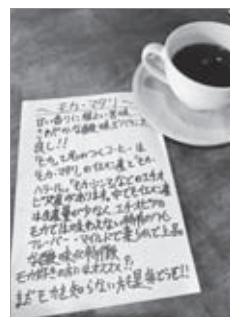 ～モカ・マタリ～
甘い香りに程よい苦味
さわやかな酸味でバランス
良し!!
モカと名のつくコーヒーは
モカ・マタリのイエメン産とモカ
ハラール、モカ・シダモなどのエチオ
ピア産があります。中でもイエメン産
は生産量が少なく、エチオピアの
モカでは味わえない特有のつよい
フレーバー・マイルドで柔らかで上品
な酸味が特徴
モカ好きの方にオススメ!!
まだモカを知らない方も是非どうぞ!!